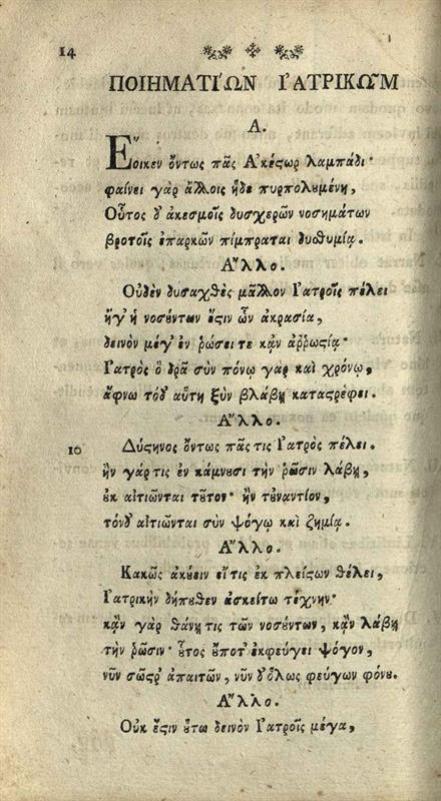 14
ΠΟΙΗΜΑΤΙ´ΩΝ Ι᾿ΑΤΡΙΚΩ͂Μ
Α.
Ἔοικεν ὄντως πᾶς Ἀκέςωρ λαμπάδι·
φαίνει γὰρ ἄλλοις ἥδε πυρπολȣμένη,
Οὗτος δ' ἀκεσμοῖς δυσχερῶν νοσημάτων
βροτοῖς ἐπαρκῶν πίμπραται δυσθυμίᾳ.
Ἄλλο.
Οὐδὲν δυσαχθὲς μᾶλλον Ἰατροῖς πέλει
ἤγ' ἡ νοσȣ́ντων ἔςιν ὧν ἀκρασία,
δεινὸν μέγ' ἐν ῥώσει τε κᾂν ἀῤῥωςίᾳ·
Ἰατρὸς ὃ δρᾷ σὺν πόνῳ γὰρ καὶ χρόνῳ,
ἄφνω τόδ' αὕτη ξὺν βλάβῃ καταςρέφει.
Ἄλλο.
10 Δύςηνος ὄντως πᾶς τις Ἰατρὸς πέλει.
ἢν γάρ τις ἐν κάμνȣσι τὴν ῥῶσιν λάβῃ,
ȣ̓κ αἰτιῶνται τȣ͂τον· ἢν τȣ̓ναντίον,
τόνδ' αἰτιῶνται σὺν ψόγῳ καὶ ζημίᾳ.
Ἄλλο.
Κακῶς ἀκȣ́ειν εἴ τις ἐκ πλείςων θέλει,
Ἰατρικὴν δήπȣθεν ἀσκείτω τέχνην·
κᾂν γὰρ θάνῃ τις τῶν νοσȣ́ντων, κᾂν λάβῃ
τὴν ῥῶσιν· ȣ̔͂τος ȣ̓́ποτ' ἐκφεύγει ψόγον,
νῦν σῶςρ' ἀπαιτῶν, νῦν δ' ὅλως φεύγων φόνȣ.
Ἄλλο.
Οὐκ ἔςιν ȣ̔́τω δεινὸν Ἰατροῖς μέγα,